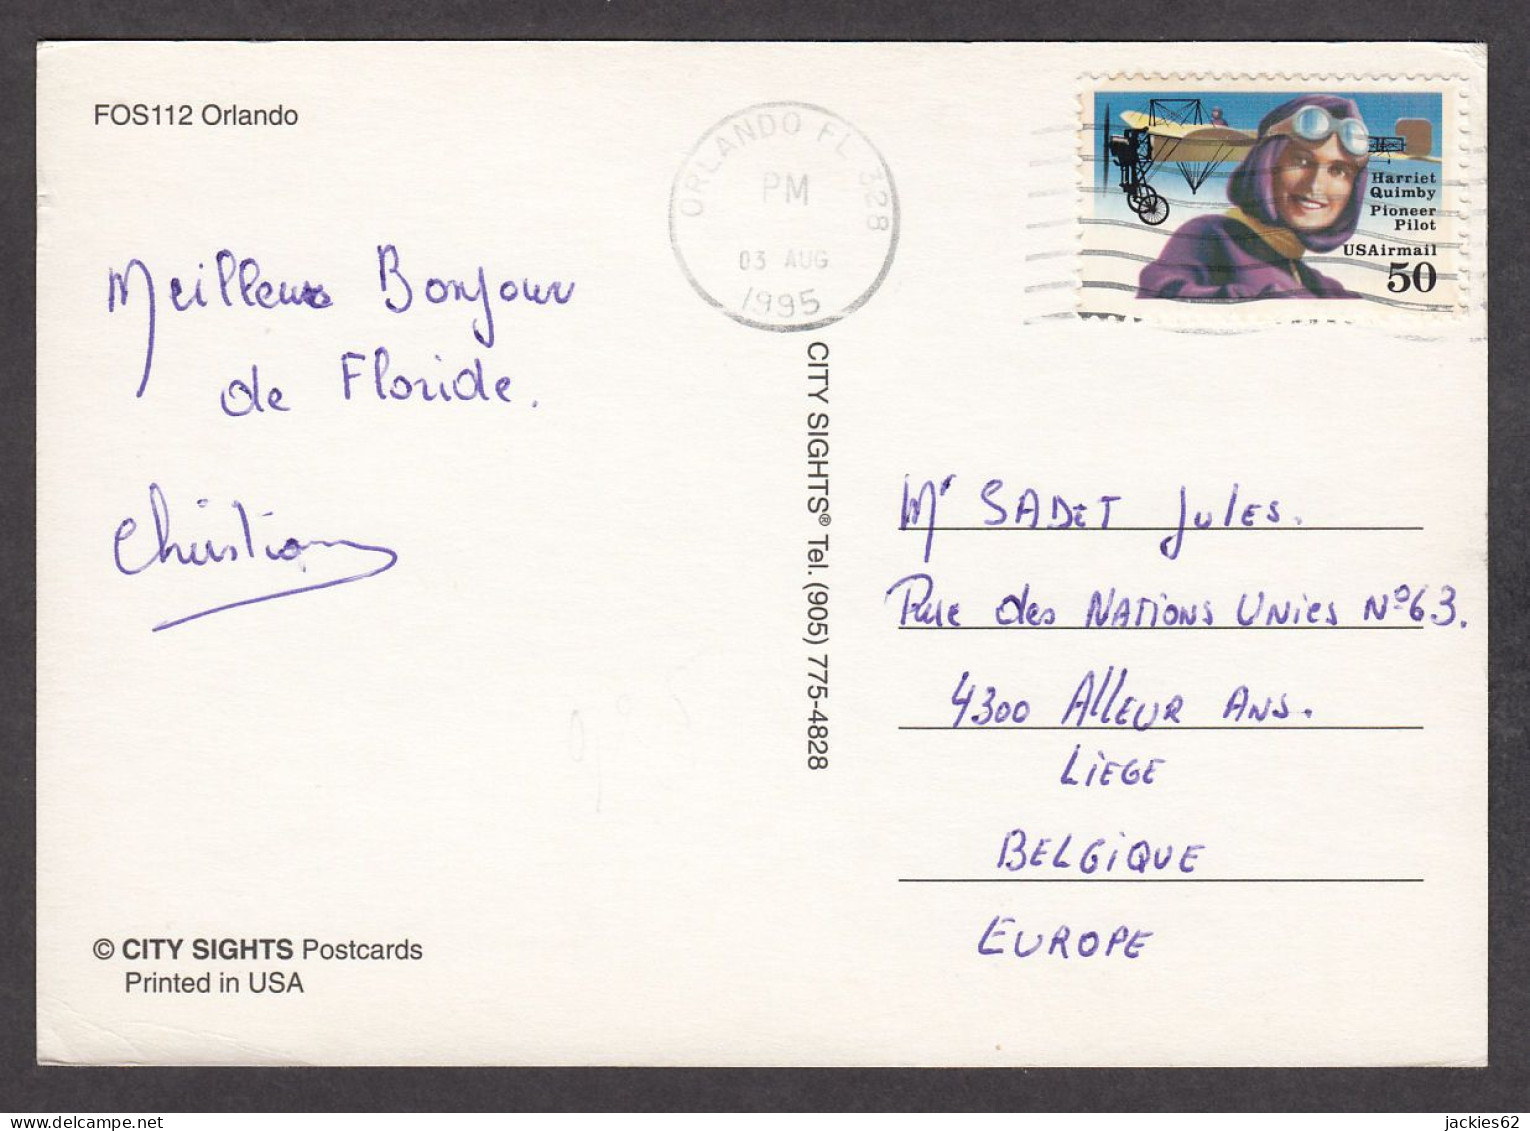 FOS112 Orlando
ORLANDO FL 328
PM
03 AUG
1995
Harriet
Quimby
Pioneer
Pilot
USAirmail
50
Meilleur Bonjour
de Floride.
Christian
CITY SIGHTS® Tel. (905) 775-4828
Mr SADET Jules.
Rue des NATiONS UNiES Nº63.
4300 AllEUR ANS.
LiEGE
BELGiQUE
EUROPE
© CITY SIGHTS Postcards
Printed in USA
delcampe.net
jackies62